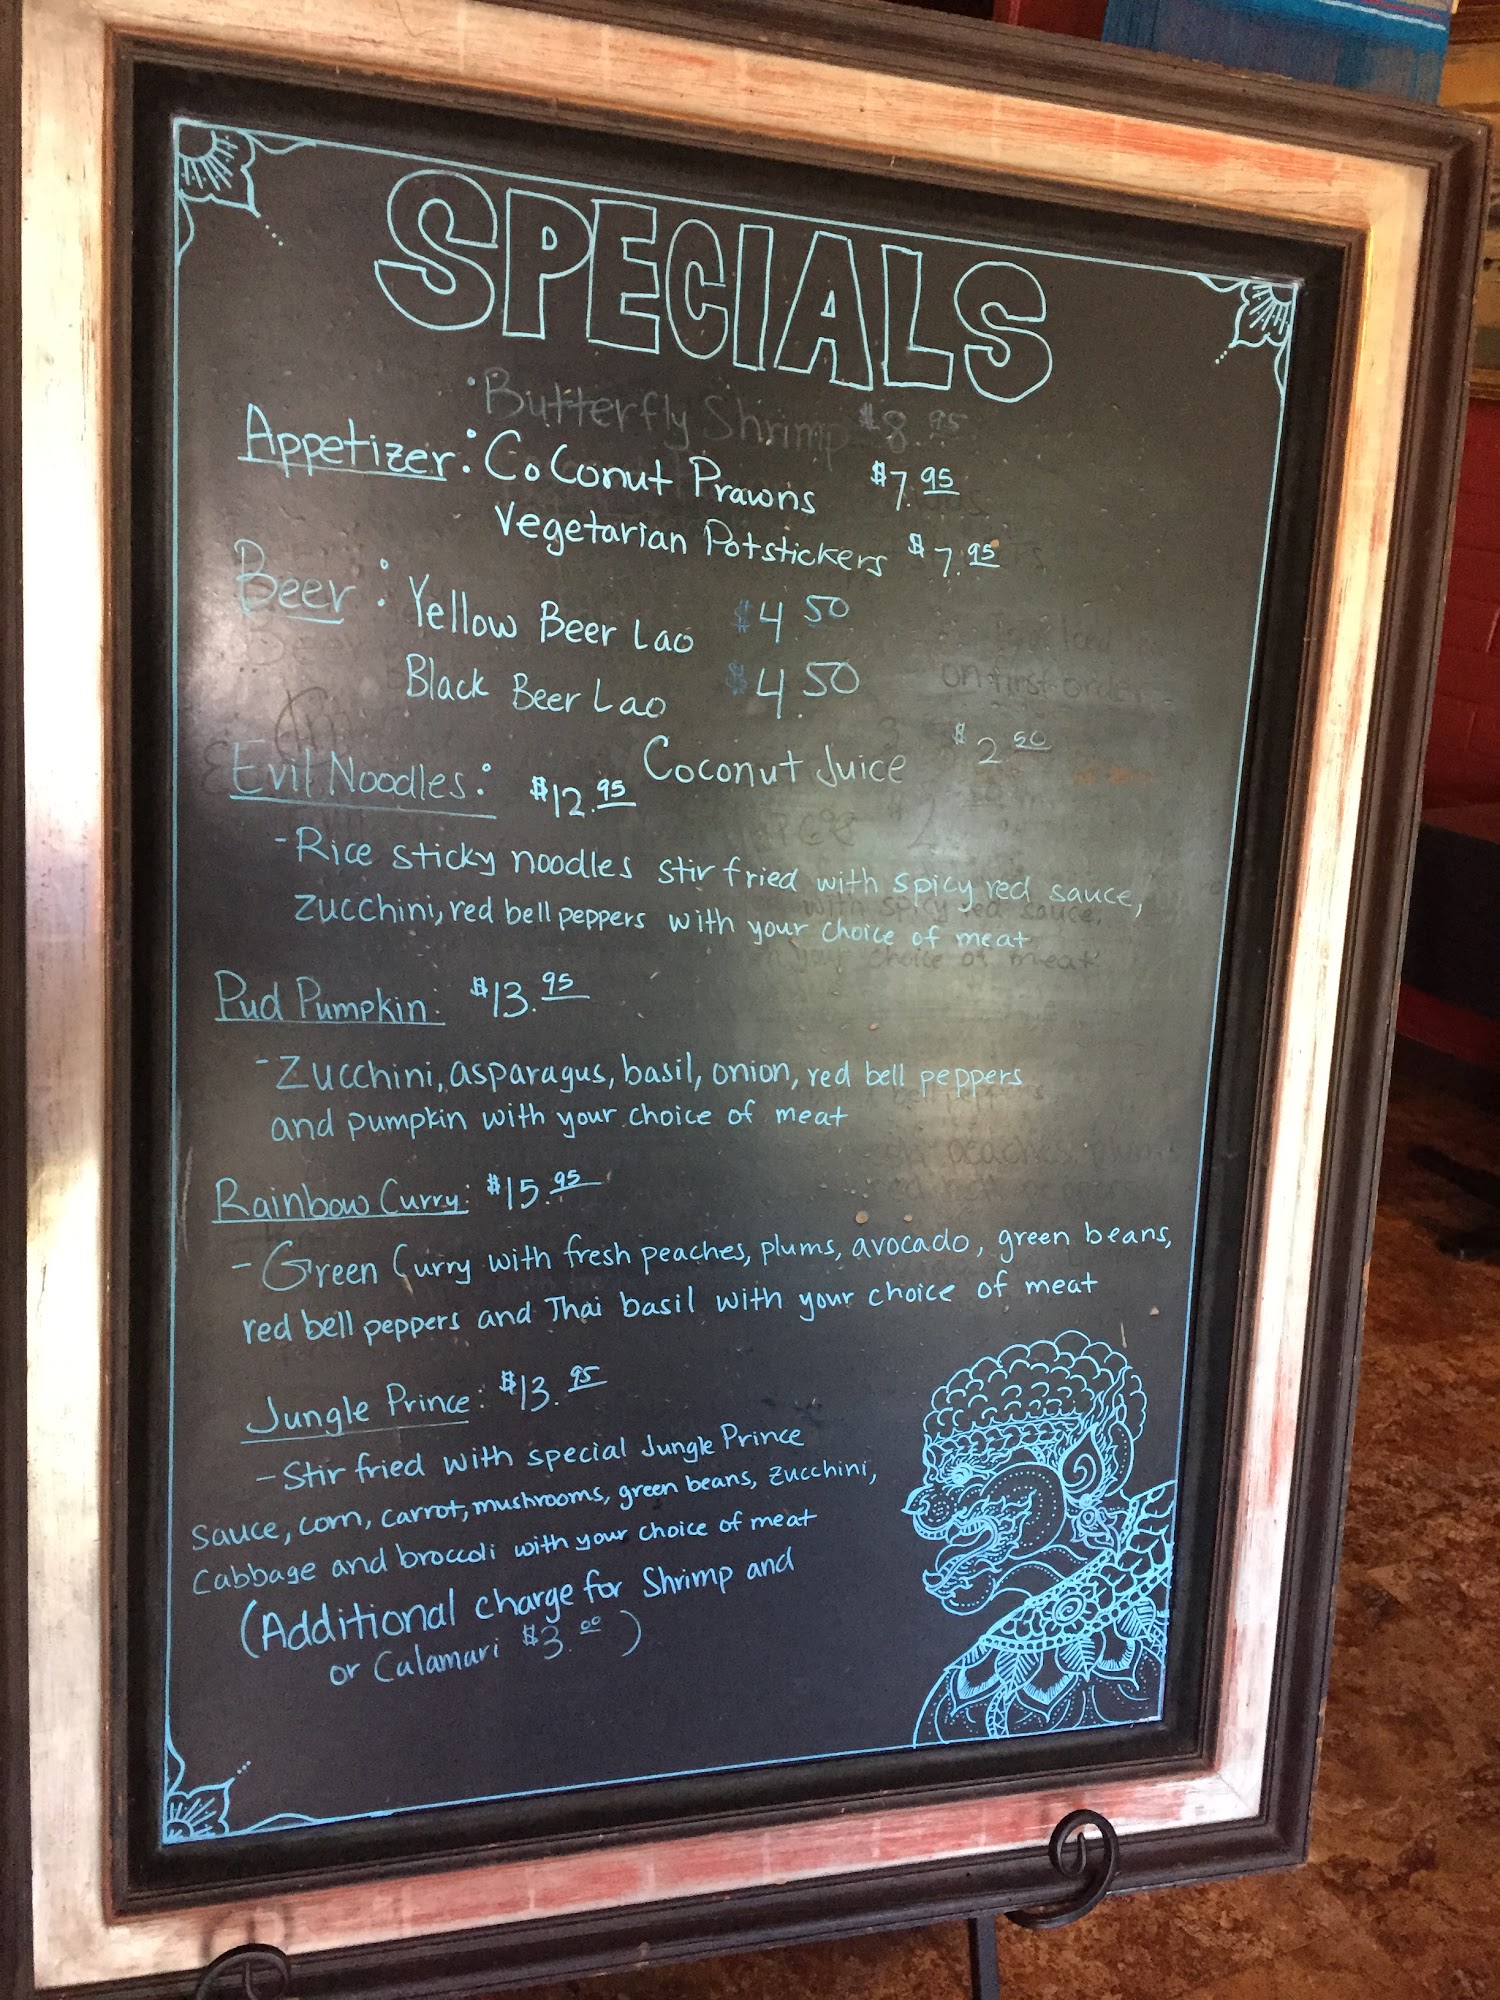 SPECIALS
Butterfly Shrimp $8.95
Appetizer: Coconut Prawns $7.95
Vegetarian Potstickers $7.95
Beer: Yellow Beer Lao $4.50
Black Beer Lao $4.50
on first order
Coconut Juice $2.50
Evil Noodles: $12.95
- Rice sticky noodles stir fried with spicy red sauce,
zucchini, red bell peppers with your choice of meat
with spicy red sauce,
your choice of meat
Pud Pumpkin: $13.95
- Zucchini, asparagus, basil, onion, red bell peppers
and pumpkin with your choice of meat
Rainbow Curry: $15.95
- Green Curry with fresh peaches, plums, avocado, green beans,
red bell peppers and Thai basil with your choice of meat
Jungle Prince: $13.95
- Stir fried with special Jungle Prince
sauce, corn, carrot, mushrooms, green beans, zucchini,
cabbage and broccoli with your choice of meat
(Additional charge for Shrimp and
or Calamari $3.00)